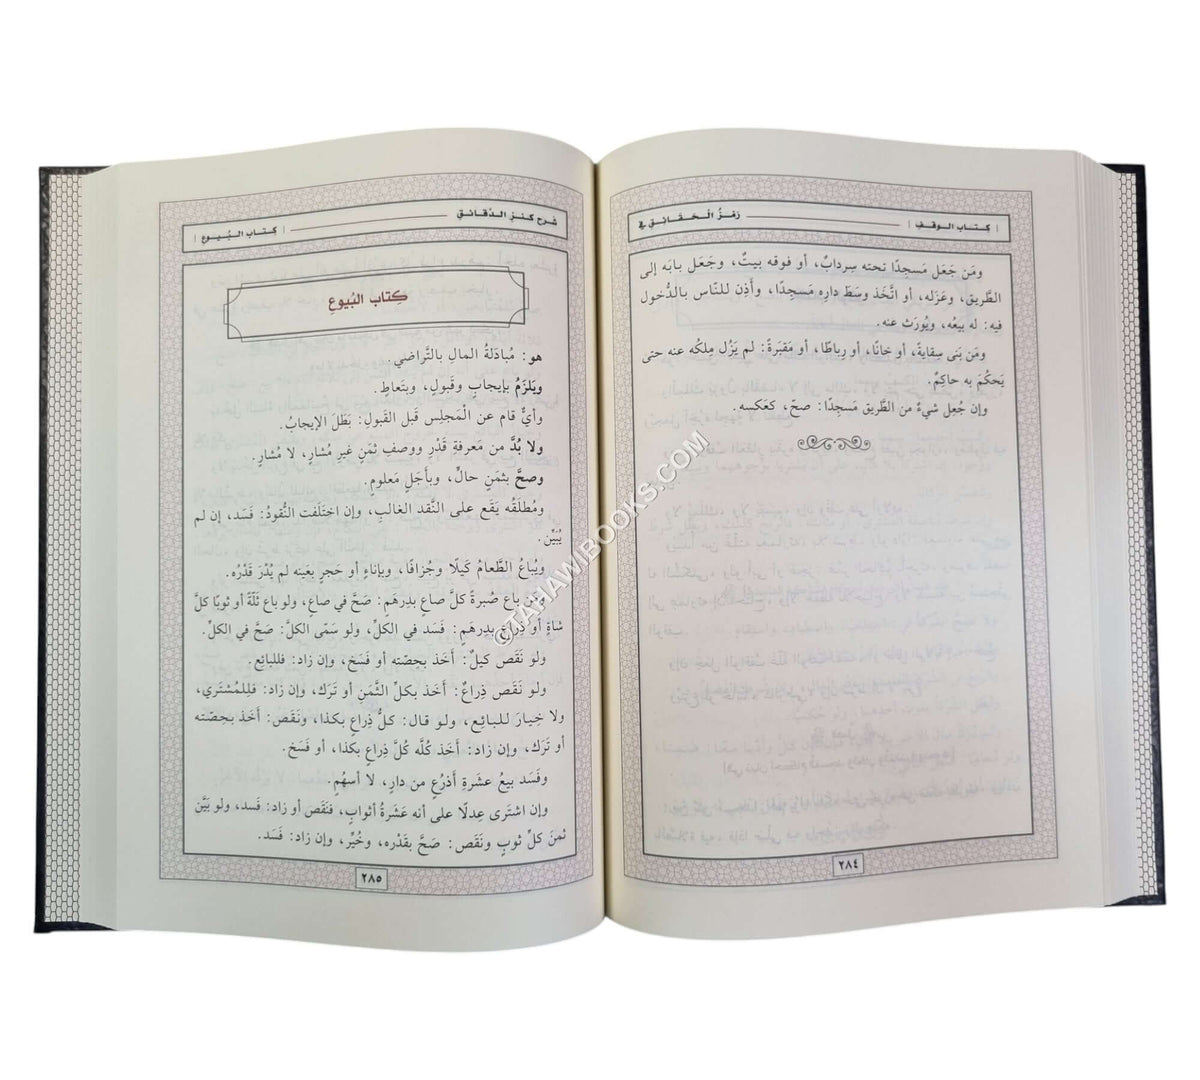 | كتاب الوقف | رَمْزُ الْحَقَائِق في
ومَن جَعَل مَسجدًا تحته سِردابٌ، أو فوقه بيتٌ، وجَعَل بابَه إلى
الطَّريق، وعَزَله، أو اتَّخَذ وسَطَ دارِه مَسجِدًا، وأَذِن للنَّاس بالدُّخول
فيه: له بيعُه، ويُورَث عنه.
ومَن بَنى سِقايةً، أو خانًا، أو رِباطًا، أو مَقبَرةً: لم يَزُل مِلكُه عنه حتى
يَحكُمَ به حاكِمٌ.
وإن جُعِل شيءٌ من الطَّريق مَسجدًا: صحّ، كعَكسِه.
٢٨٤
شرح كنز الدقائق | كتاب البُيوع |
كِتاب البُيوع
هو: مُبادَلةُ المالِ بالتَّراضي.
ويَلزَمُ بإيجابٍ وقَبولٍ، وبتَعاطٍ.
وأيٌّ قام عن الْمَجلِس قبل القَبول: بَطَلَ الإيجابُ.
ولا بُدَّ من مَعرفةِ قَدْرٍ ووَصفِ ثمَنٍ غيرِ مُشارٍ، لا مُشارٍ.
وصحَّ بثمَنٍ حالٍّ، وبأجَلٍ مَعلومٍ.
ومُطلَقُه يَقَع على النَّقد الغالبِ، وإن اختَلَفت النُّقودُ: فَسَد، إن لم
يُبيِّن.
ويُباعُ الطَّعامُ كَيلًا وجُزافًا، وبإناءٍ أو حَجرٍ بعَينه لم يُدْرَ قَدْرُه.
ومَن باع صُبرةً كلَّ صاعٍ بدِرهَمٍ: صَحَّ في صاعٍ، ولو باع ثَلّةً أو ثوبًا كلَّ
شاةٍ أو ذِراعٍ بدِرهَمٍ: فَسَد في الكلِّ، ولو سَمّى الكلَّ: صَحَّ في الكلِّ.
ولو نَقَص كيلٌ: أَخَذ بحِصّته أو فَسَخ، وإن زاد: فللبائِع.
ولو نَقَص ذِراعٌ: أَخَذ بكلِّ الثَّمَنِ أو تَرَك، وإن زاد: فلِلمُشتَري،
ولا خِيارَ للبائِع، ولو قال: كلُّ ذِراعٍ بكذا، ونَقَص: أَخَذ بحِصّته
أو تَرَك، وإن زاد: أَخَذ كُلَّه كُلَّ ذِراعٍ بكذا، أو فَسَخ.
وفَسَد بيعُ عشَرةِ أذرُعٍ من دارٍ، لا أسهُمٍ.
وإن اشتَرى عِدلًا على أنه عَشَرةُ أثوابٍ، فنَقَص أو زاد: فَسد، ولو بَيَّن
ثمنَ كلِّ ثوبٍ ونَقَص: صَحَّ بقَدْرِه، وخُيِّر، وإن زاد: فَسَد.
٢٨٥
©TAHAWIBOOKS.COM